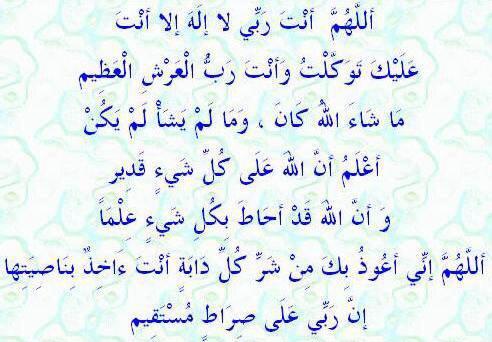 أللَّهُمَّ أنْتَ رَبِّي لا إلَهَ إلا أنْتَ
عَلَيْكَ تَوَكَّلْتُ وَأنْتَ رَبُّ الْعَرْشِ الْعَظِيم
مَا شَاءَ اللهُ كانَ ، وَمَا لَمْ يَشَأْ لَمْ يَكُنْ
أعْلَمُ أنَّ اللهَ عَلَى كُلِّ شَيءٍ قَدِير
وَ أنَّ اللهَ قَدْ أحَاطَ بكُلِ شَيءٍ عِلْمَاً
أللَّهُمَّ إنِّي أعُوذُ بِكَ مِنْ شَرِّ كُلِّ دَابَةٍ أنْتَ ءَاخِذٌ بِنَاصِيَتِها
إنَّ رَبِّي عَلَى صِرَاطٍ مُسْتَقِيم